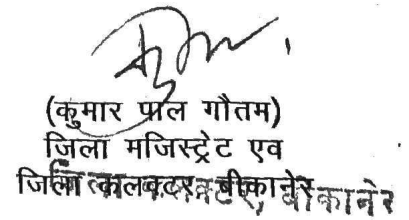 (कुमार पाल गौतम)
जिला मजिस्ट्रेट एव
जिला कलक्टर बीकानेर
बीकानेर